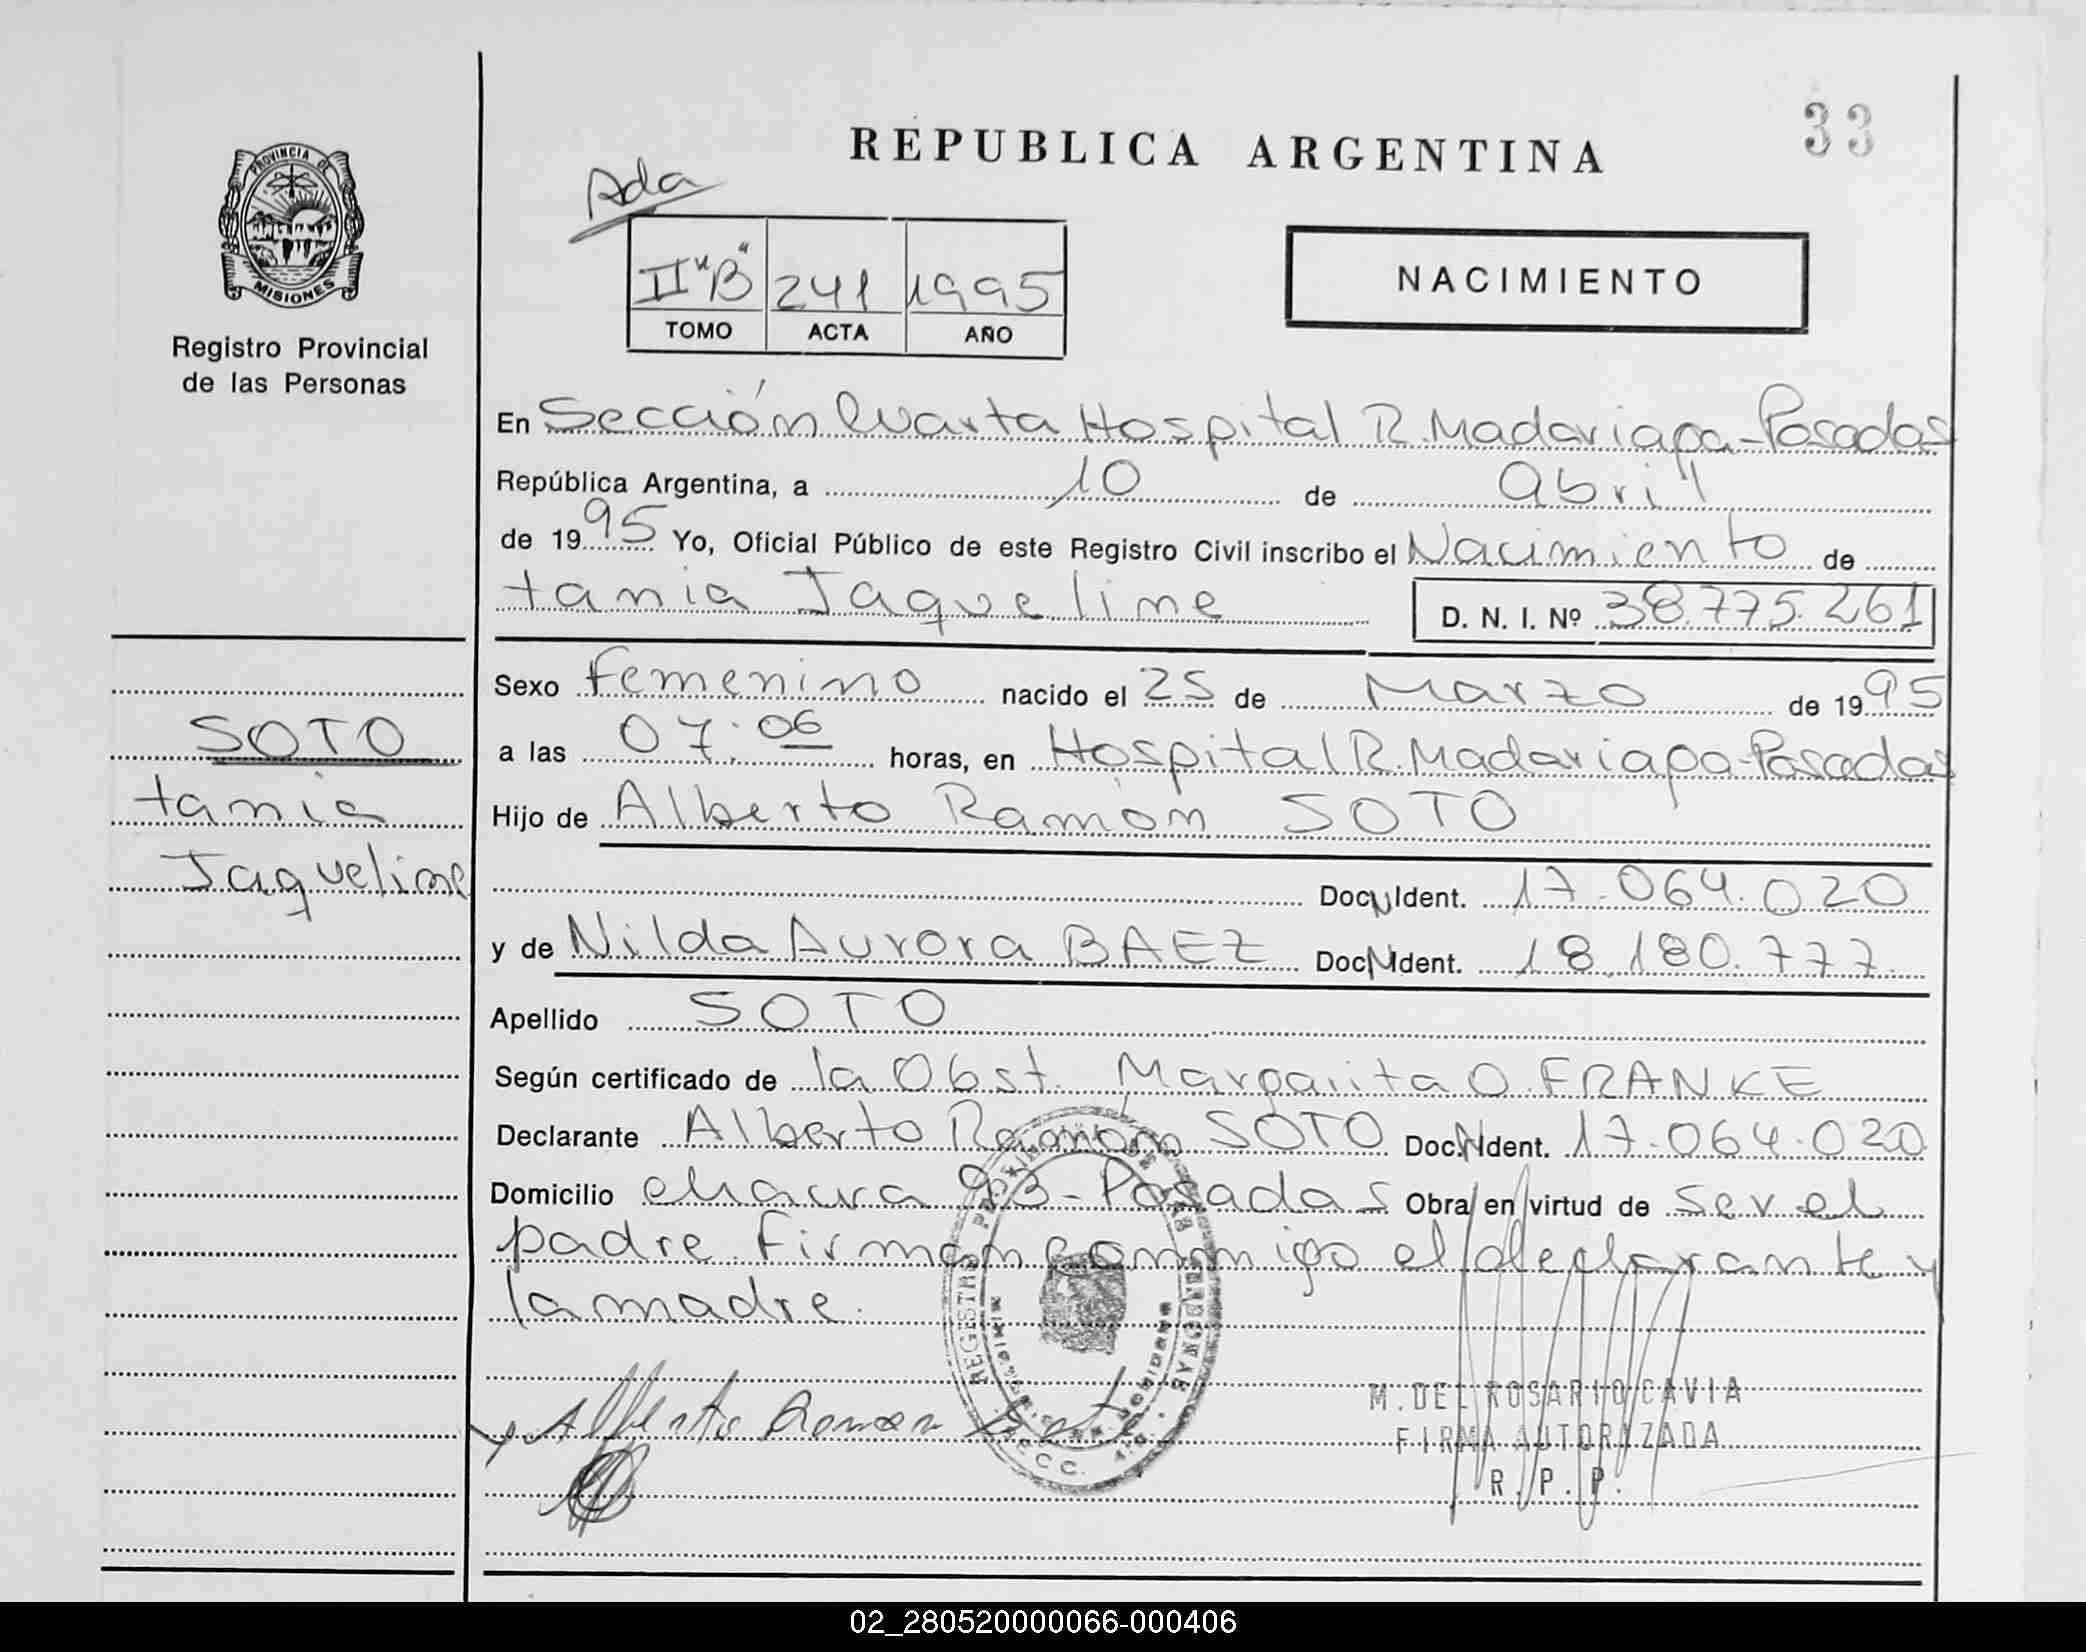 REPUBLICA ARGENTINA
33
Ada
PROVINCIA DE
MISIONES
Registro Provincial
de las Personas
II "B" 241 1995
TOMO ACTA AÑO
NACIMIENTO
En Sección Cuarta Hospital R. Madariaga - Posadas
República Argentina, a 10 de abril
de 1995 Yo, Oficial Público de este Registro Civil inscribo el Nacimiento de
tania Jaqueline D. N. I. Nº 38.775.261
Sexo femenino nacido el 25 de Marzo de 1995
SOTO
tania
Jaqueline
a las 07.06 horas, en Hospital R. Madariaga - Posadas
Hijo de Alberto Ramón SOTO
Doc N Ident. 17.064.020
y de Nilda Aurora BAEZ Doc N Ident. 18.180.777.
Apellido SOTO
Según certificado de la Obst. Margarita O. FRANKE
Declarante Alberto Ramón SOTO Doc. N Ident. 17.064.020
Domicilio chacra 93 - Posadas Obra en virtud de ser el
padre. Firman conmigo el declarante y
la madre.
REGISTRO PROVINCIAL DE LAS PERSONAS
Alberto Ramon Soto
M. DEL ROSARIO CAVIA
FIRMA AUTORIZADA
R. P. P.
02_280520000066-000406